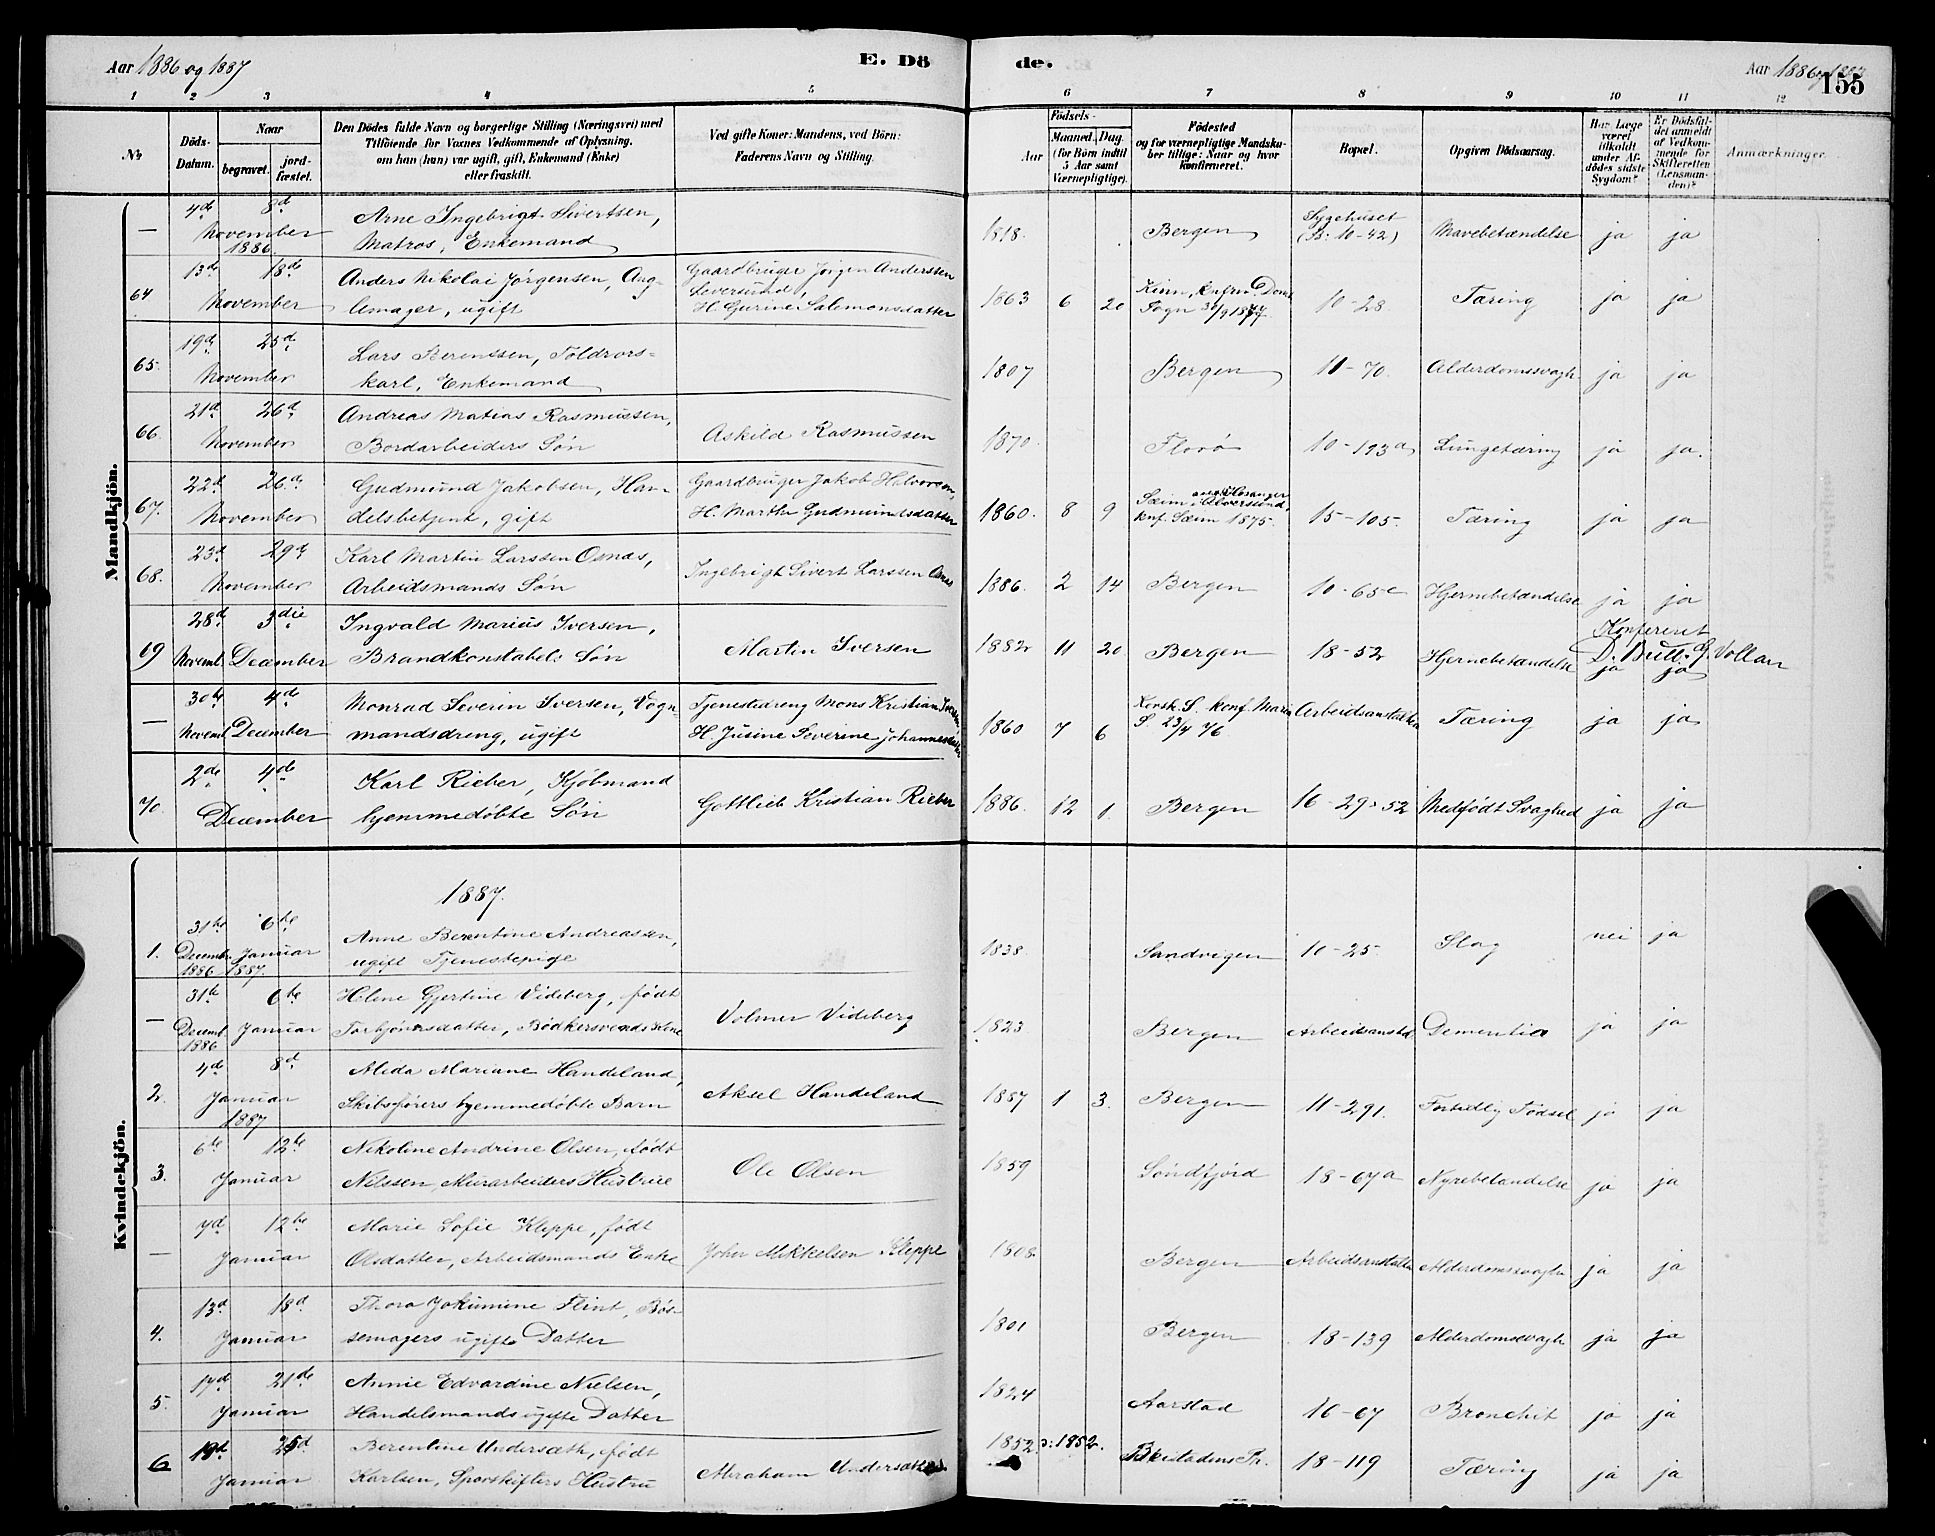 Aar 1886 og 1887
E. Dö
de.
Aar 1886 1887
155
1 2 3 4 5 6 7 8 9 10 11 12
№
Döds-Datum.
Naar
begravet.
jord-fæstet.
Den Dödes fulde Navn og borgerlige Stilling (Næringsvei) med
Tilföiende for Voxnes Vedkommende af Oplysning,
om han (hun) var ugift, gift, Enkemand (Enke)
eller fraskilt.
Ved gifte Koner: Mandens, ved Börn:
Faderens Navn og Stilling.
Födsels-
Aar
Maaned. Dag.
(for Börn indtil
5 Aar samt
Værnepligtige).
Födested
og for værnepligtige Mandskaber tillige: Naar og hvor konfirmeret.
Bopæl.
Opgiven Dödsaarsag.
Har Læge været tilkaldt under Afdödes sidste Sygdom?
Er Dödsfaldet anmeldt af Vedkommende for Skifteretten (Lensmanden)?
Anmærkninger.
Mandkjön.
— 4de 8de November 1886 Arne Ingebrigt Sivertsen, Matros, Enkemand 1818. Bergen Sygehuset (B: 10-42) Mavebetændelse ja ja
64 13de 18de November Anders Nikolai Jörgensen, Anglemager, ugift Gaardbruger Jörgen Anderssen H. Gurine Salemonsdatter 1863 6 20 Kinn, knfrm. Domk. Sogn 30/9 1877 10-28. Tæring ja ja
65. 19de 25de November Lars Berentsen, Toldrorskarl, Enkemand 1807 Bergen 11-70. Alderdomssvagh. ja ja
66. 21de 26de November Andreas Matias Rasmussen, Bordarbeiders Sön Askild Rasmussen 1870. Florö 10-193a Lungetæring ja ja.
67. 22de 26de November Gudmund Jakobsen, Handelsbetjent, gift Gaardbruger Jakob Halvorsen, H. Marthe Gudmundsdatter 1860. 8 9 Sæim i Alversund, knf. Sæim 1875. 15-105. Tæring ja ja
68. 23de 29de November Karl Martin Larssen Osnæs, Arbeidsmands Sön Ingebrigt Sivert Larssen Osnæs 1886. 2 14 Bergen 10-65c Hjernebetændelse ja ja
69 28de Novemb. 3die December Ingvald Marius Iversen, Brandkonstabels Sön Martin Iversen 1882 11 20 Bergen 18-52 Hjernebetændelse ja ja Konfereret D. Britt. G. Vollan
— 30te Novemb. 4de December Monrad Severin Iversen, Vognmandsdreng, ugift Tjenestedreng Mons Kristian Iversen, H. Jusine Severine Johannesdatter 1860 7 6 Korsk. S. konf. Maria S. 23/4 76 Arbeidsanstalten Tæring ja ja
70. 2de 4de December Karl Rieber, Kjöbmand hjemmedöbte Sön Gottlieb Kristian Rieber 1886. 12 1. Bergen 16-29-52 Medfödt Svaghed ja ja
Kvindekjön.
1887.
1. 31te Decemb. 1886 6te Januar 1887. Anne Berentine Andreassen, ugift Tjenestepige 1838. Sandvigen 16-25. Slag nei ja
— 31te Decemb. 1886 6te Januar Helene Gjertine Videberg, födt Torbjörnsdatter, Bödkersvends Kone Volmer Videberg 1823. Bergen Arbeidsanstal. Dementia ja ja
2. 4de 8de Januar 1887 Alida Mariane Handeland, Skibsförers hjemmedöbte Barn Aksel Handeland 1887 1 3. Bergen 11-291. Fortidlig Födsel ja ja
3. 6te 12te Januar Nikoline Andrine Olsen, födt Nilssen, Murarbeiders Hustrue Ole Olsen 1859 Söndfjörd 18-67a Nyrebetændelse ja ja
— 7de 12te Januar Marie Sofie Kleppe, födt Olsdatter, Arbeidsmands Enke Joher Mikkelsen Kleppe 1808. Bergen Arbeidsanstalten Alderdomssvaghe ja ja
4. 13de 18de Januar Thora Jokumine Flint, Bössemagers ugifte Datter 1801 Bergen 18-139 Alderdomssvagh ja ja
5. 17de 21de Januar Annie Edvardine Nielsen, Handelsmands ugifte Datter 1824 Aarstad 16-67 Bronchit ja ja
6 19de 25de Januar Berentine Undersæth, födt Karlsen, Sporskifters Hustru Abraham Undersæth 1852. ɔ: 1852. 18-119 Tæring ja ja